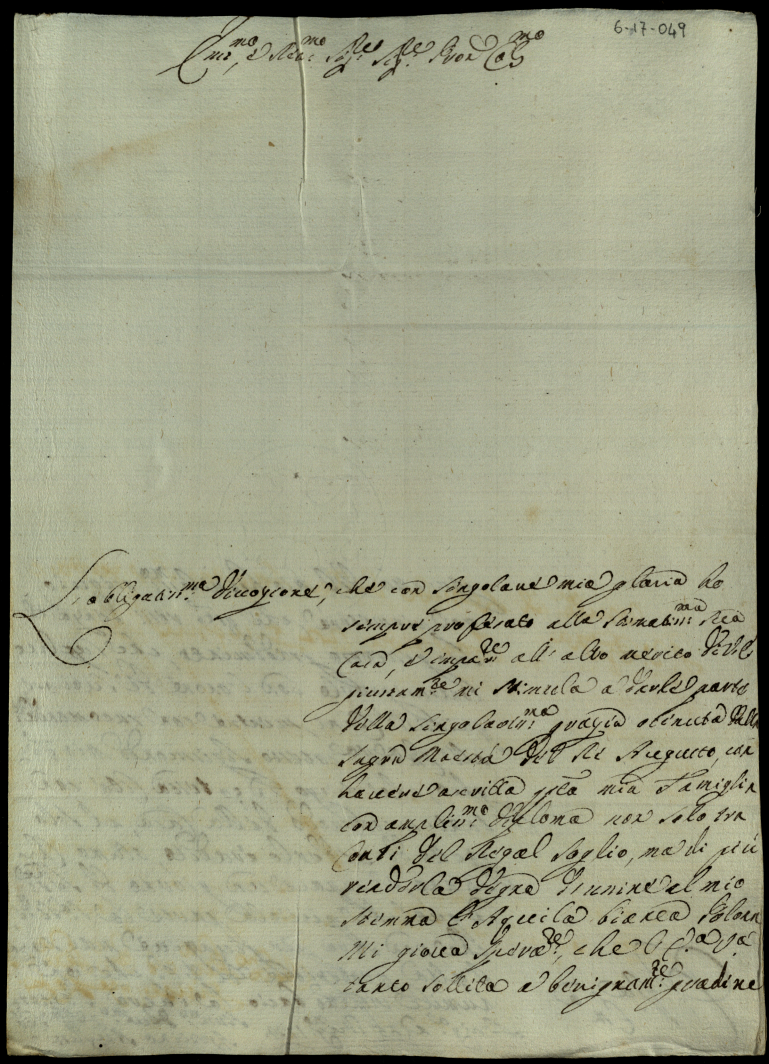 6-17-049
Ill.mo, e Rev.mo Sig.re Sig.re Pron Col.mo
L'obligatiss.ma divozione, che con singolare mia gloria ho
sempre professato alla stimatiss.ma Sua
Casa, e all' alto merito di VS
giustam.te mi stimula a darle parte
della singolariss.ma grazia ottenuta dalla
Sagra Maestà del Rè Augusto, con
havere ascritta q.sta mia Famiglia
con ampliss.mo diploma non solo tra
Conti del Regal Soglio, ma di più
rendendola degna d'unire al mio
stemma l'Aquila bianca
Mi giova sperare, che
tanto sollita a benignam.te gradire